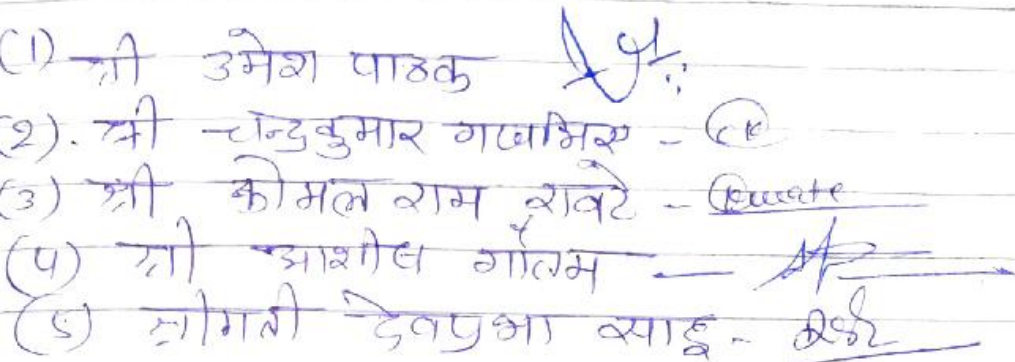 (1) श्री उमेश पाठक
(२). श्री चन्द्रकुमार - CK
(3) श्री कोमल राम रावटे - Rawate
(4) श्री आशीष गौतम —
(5) श्रीमती देवप्रभा साहू -